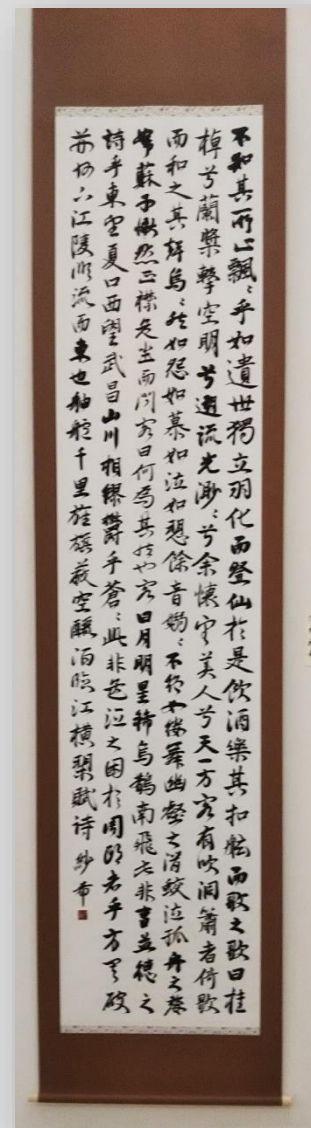 不知其所止飄々乎如遺世獨立羽化而登仙於是飲酒樂甚扣舷而歌之歌曰桂
棹兮蘭槳擊空明兮遡流光渺々兮余懷望美人兮天一方客有吹洞簫者倚歌
而和之其聲烏々然如怨如慕如泣如愬餘音嫋々不絶如縷舞幽壑之潜蛟泣孤舟之嫠
婦蘇子愀然正襟危坐而問客曰何為其然也客曰月明星稀烏鵲南飛此非曹孟德之
詩乎東望夏口西望武昌山川相繆欝乎蒼々此非孟德之困於周郎者乎方其破
荊州下江陵順流而東也舳艫千里旌旗蔽空釃酒臨江横槊賦詩 紗希